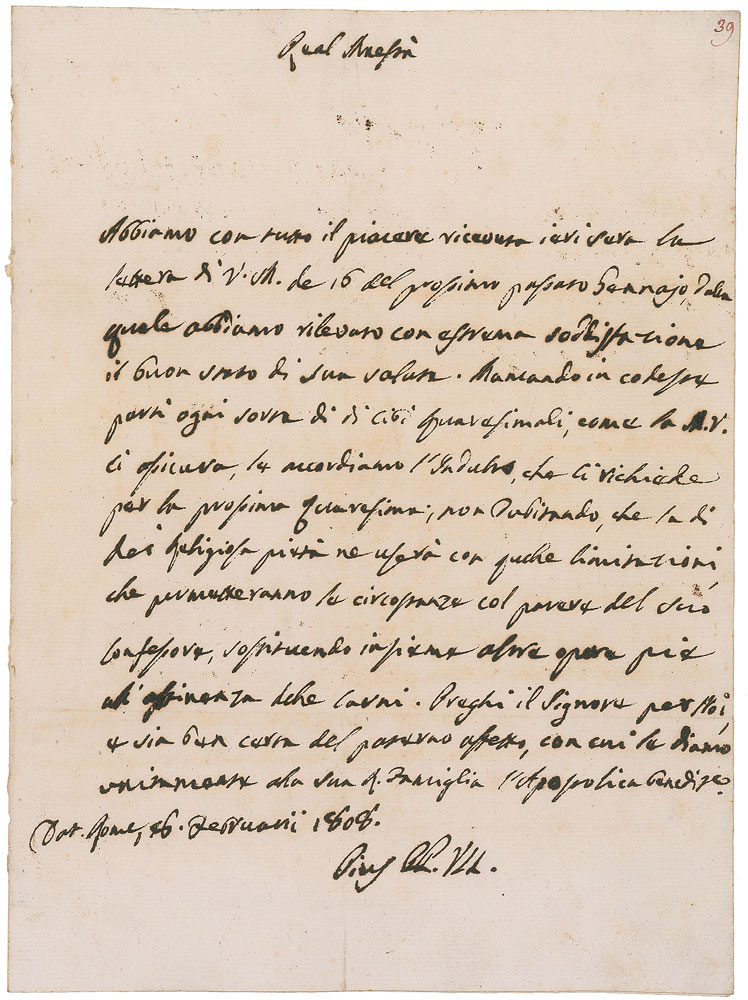 39
Real Maestà
Abbiamo con tutto il piacere ricevuta jeri sera la
lettera di V. M. de 16 del prossimo passato Gennajo, dalla
quale abbiamo rilevato con estrema soddisfazione
il buon stato di sua salute. Mancando in codeste
parti ogni sorta di di cibi quaresimali, come la M. V.
ci assicura, le accordiamo l'Indulto, che ci richiede
per la prossima Quaresima; non dubitando, che la di
lei Religiosa pietà ne userà con quelle limitazioni
che permetteranno le circostanze col parere del suo
Confessore, sostituendo insieme altre opere pie
all'astinenza delle Carni. Preghi il Signore per Noi,
e sia ben certa del paterno affetto, con cui le diamo
unitamente alla sua R. Famiglia l'Apostolica Benedize.
Dat. Rome, 26. Februarii 1808.
Pius PP. VII.